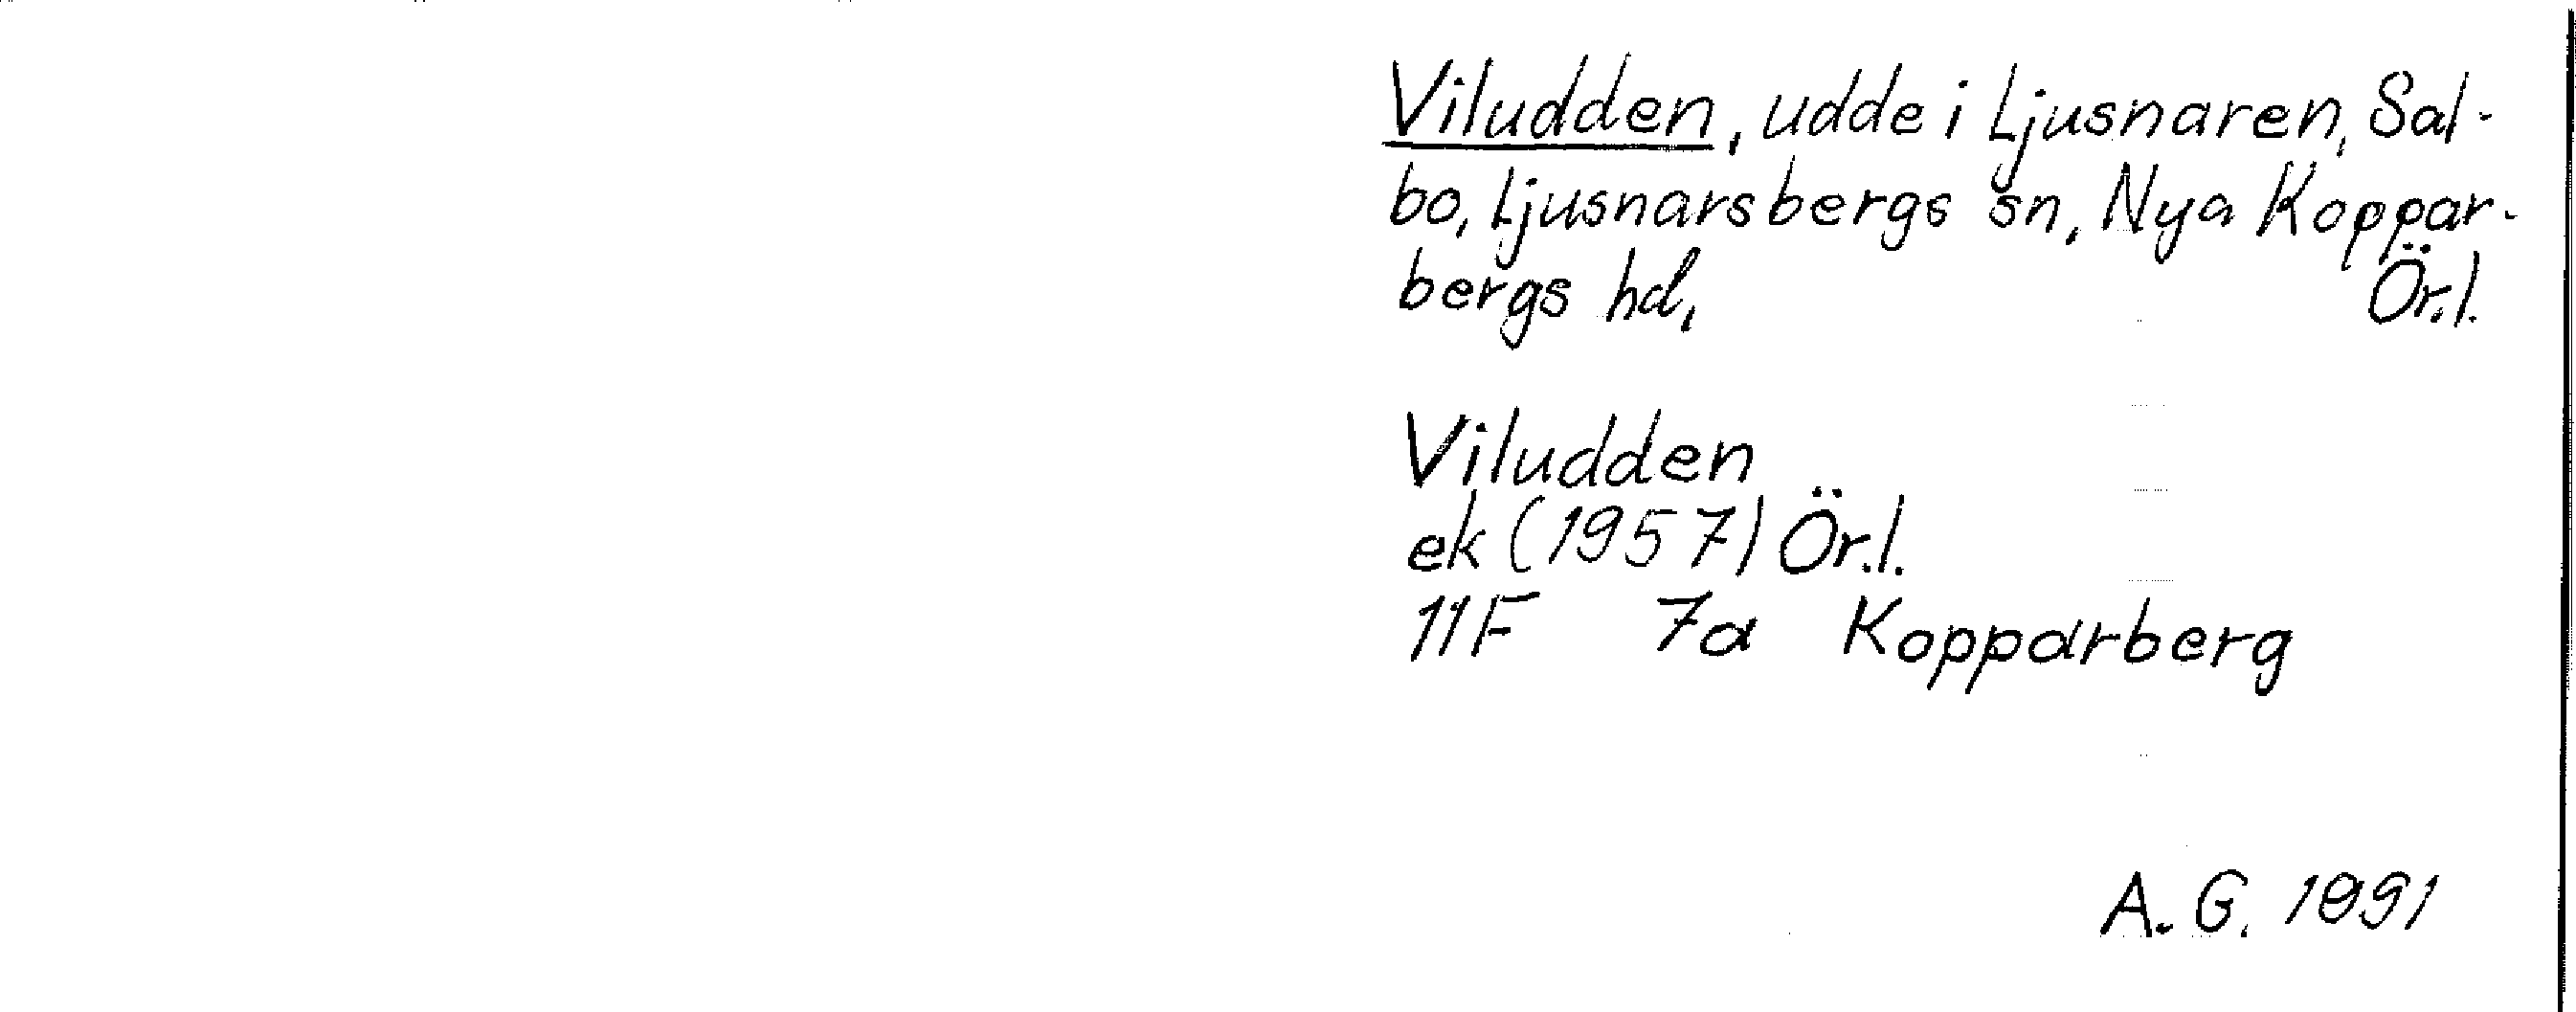 Viludden, udde i Ljusnaren, Sal-
bo, Ljusnarsbergs sn, Nya Koppar-
bergs hd, Ör.l.
Viludden
ek (1957) Ör.l.
11F 7a Kopparberg
A. G. 1991